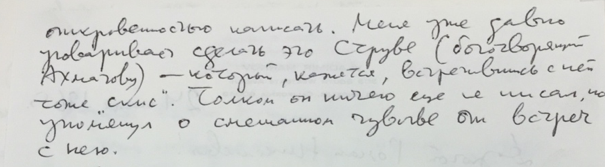 откровенностью написать. Меня уже давно
уговаривает сделать это Струве (боготворящий
Ахматову) — который, кажется, встретившись с ней
тоже „скис“. Толком он ничего еще не писал, но
упомянул о смешанном чувстве от встреч
с нею.